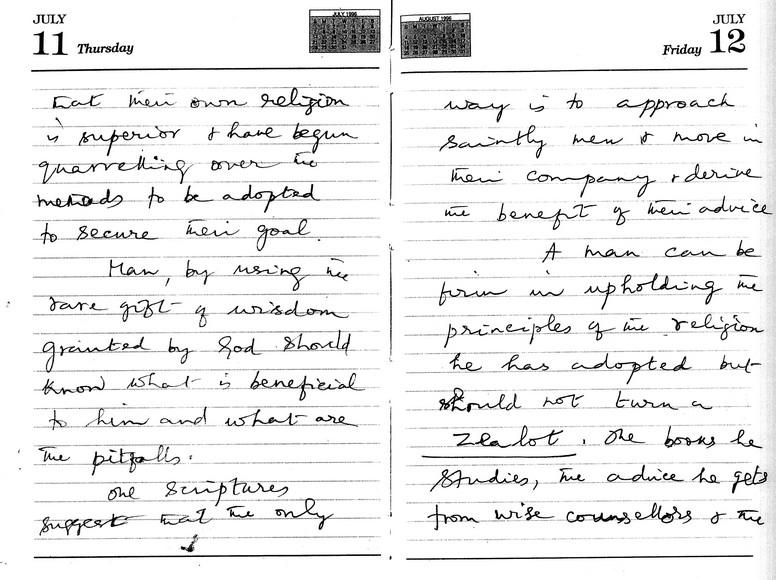 JULY
11 Thursday
JULY 1996
that their own religion
is superior & have begun
quarrelling over the
methods to be adopted
to secure their goal.
Man, by using the
rare gift of wisdom
granted by God should
know what is beneficial
to him and what are
the pitfalls.
One scriptures
suggest that the only
AUGUST 1996
JULY
Friday 12
way is to approach
saintly men & move in
their company & derive
the benefit of their advice
A man can be
firm in upholding the
principles of the religion
he has adopted but
should not turn a
zealot. The books he
studies, the advice he gets
from wise counsellors & the